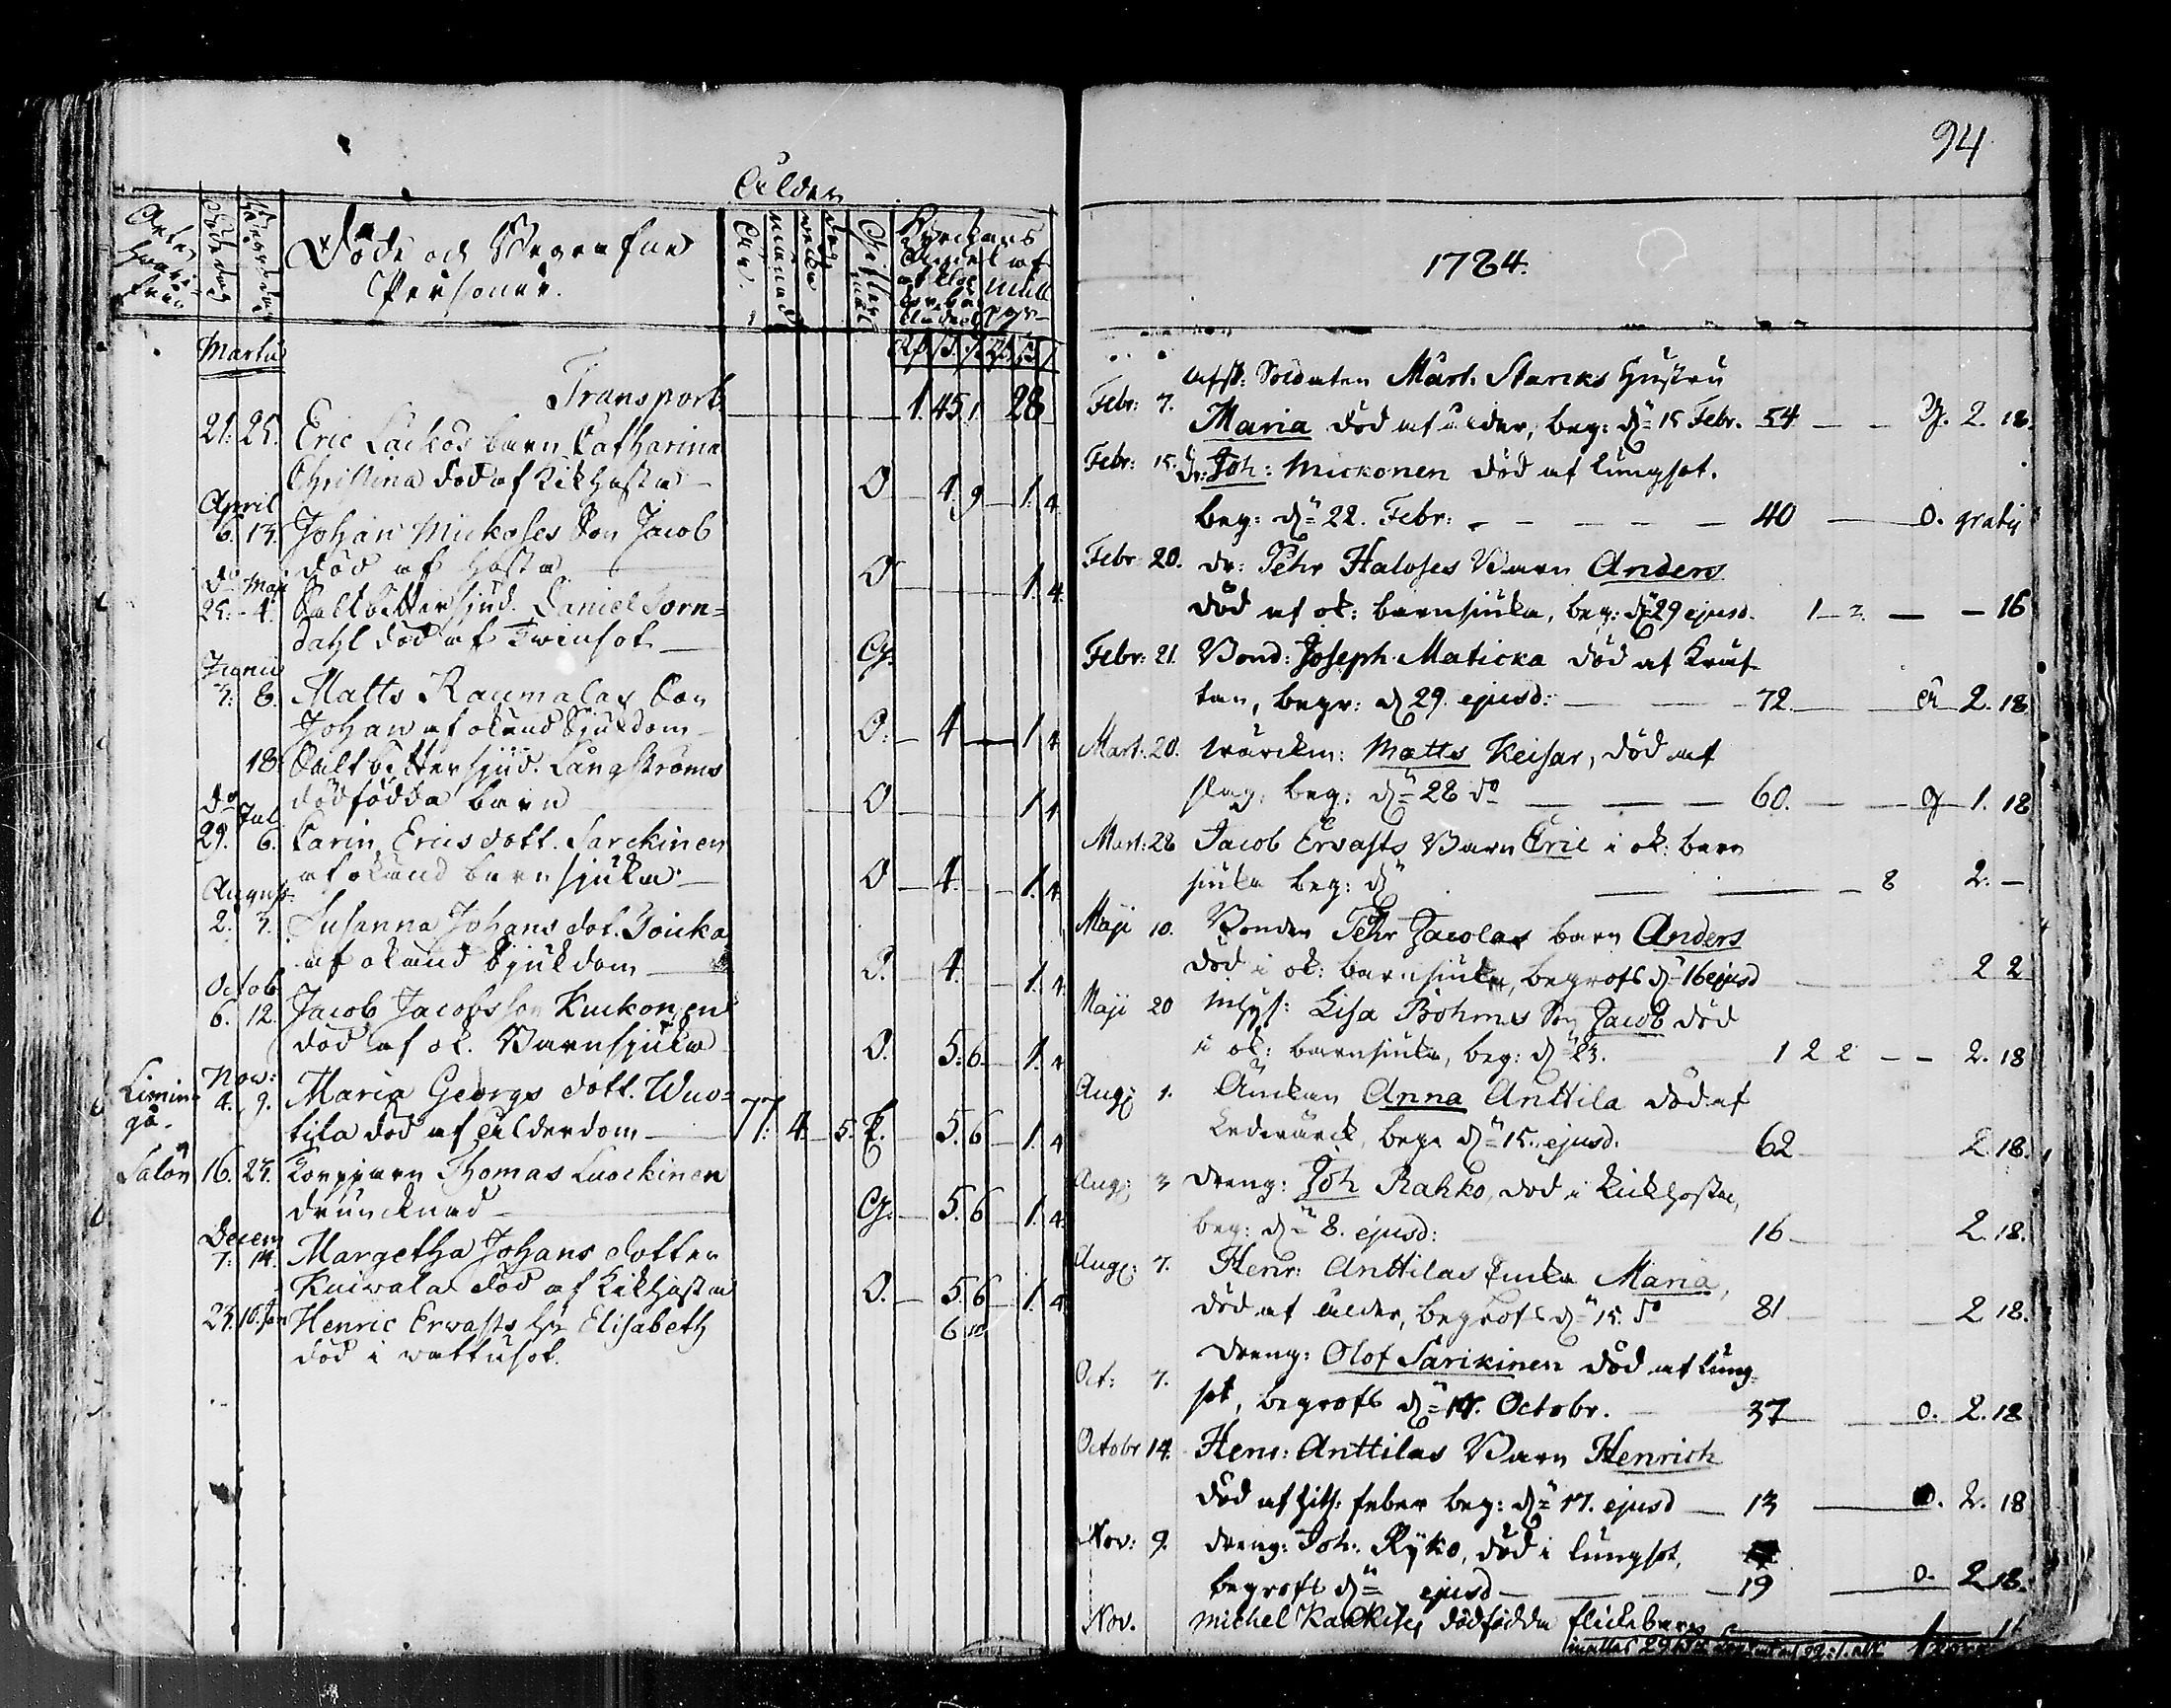 Ålder
Orter hwari-från
Döde dag
Begr: dag
Döde och Begrafne Personer.
År.
månad
wecka
dag
Gifta
Kyrckans
Andel af
mull
Martii
Transport 1. 45. 1. 28
21. 25. Eric Lackos barn Catharina
Christina död af Kikhosta O 4. 9 1. 4.
April
6. 13. Johan Mickoses Son Jacob
död af hosta O 1. 4.
do Maji
25. 4. Saltpettersjud. Daniel Torn=
dahl död af Twinsot G.
Junii
3. 6. Matts Raumalas Son
Johan af okänd Sjukdom O. 4 1 4
18. Saltpettersjud. Långströms
dödfödda barn O 1 4
do Jul
29. 6. Carin Ericsdott. Sarckinen
af okänd barnsjuka O 4. 1. 4
August
2. 3. Susanna Johansdot. Toicka
af okänd Sjukdom O. 4. 1. 4.
Octob
6. 12. Jacob Jacobsson Kuckonen
död af ok. Barnsjuka O. 5. 6 1. 4
Now:
Limingå. 4. 9. Maria Georgsdott. Wuo=
tila död af ålderdom 77. 4. 5. E. 5. 6 1. 4
Salön 16. 23. Torpparn Thomas Luockinen
drunknad G. 5. 6 1. 4.
Decem
7. 14. Margetha Johansdotter
Kuiwala död af Kikhosta O. 5. 6 1. 4.
23. 10. Jan Henric Erwasts hr Elisabeth 6 10
död i wattusot.
94
1784.
Afsk: Soldaten Mårt. Starcks hustru
Febr: 7. Maria död af ålder, beg: dn 15 Febr. 54 G. 2. 18.
Febr: 15. dr: Joh: Mickonen död af lungsot.
beg: dn 22. Febr: 40 O. gratis
Febr 20. dr: Pehr Haloses Barn Anders
död af ok: barnsjuka, beg: dn 29 ejusd. 1 2. 16
Febr: 21. Bond: Joseph Maticka död af kräf-
tan, begr: d 29. ejusd: 72. E 2. 18.
Mart. 20. Matts Keisar, död af
slag, beg: dn 28 do 60. G 1. 18
Mart: 28 Jacob Erwasts Barn Eric i ok: barn
sjuka beg: dn 8 2. –
Maji 10. Bonden Pehr Jacolas barn Anders
död i ok: barnsjuka, begrofs dn 16 ejusd 2 2
Maji 20 Inhys: Lisa Böhms Son Jacob död
i ok: barnsjuka, beg: dn 23. 1 2 2 – – 2. 18
Aug: 1. Änckan Anna Anttila död af
Ledwärck, begr dn 15. ejusd. 62 2. 18.
Aug: 3 dreng: Joh Rahko, död i Kickhosta,
beg: dn 8. ejusd: 16 2. 18.
Aug: 7. Henr: Anttilas Enka Maria,
död af ålder, begrofs dn 15. do 81 2 18.
Oct: 7. dreng: Olof Sarikinen död af lung-
sot, begrofs dn 17. Octobr. 37 O. 2. 18
Octobr 14. Henr: Anttilas Barn Henrich
död af hits: feber beg: dn 17. ejusd 13 O. 2. 18
Nov: 9. dreng: Joh: Ryko, död i lungsot,
begrofs dn ejusd 19 O. 2 18.
Nov. Michel Kaakises dödfödda flickebarn